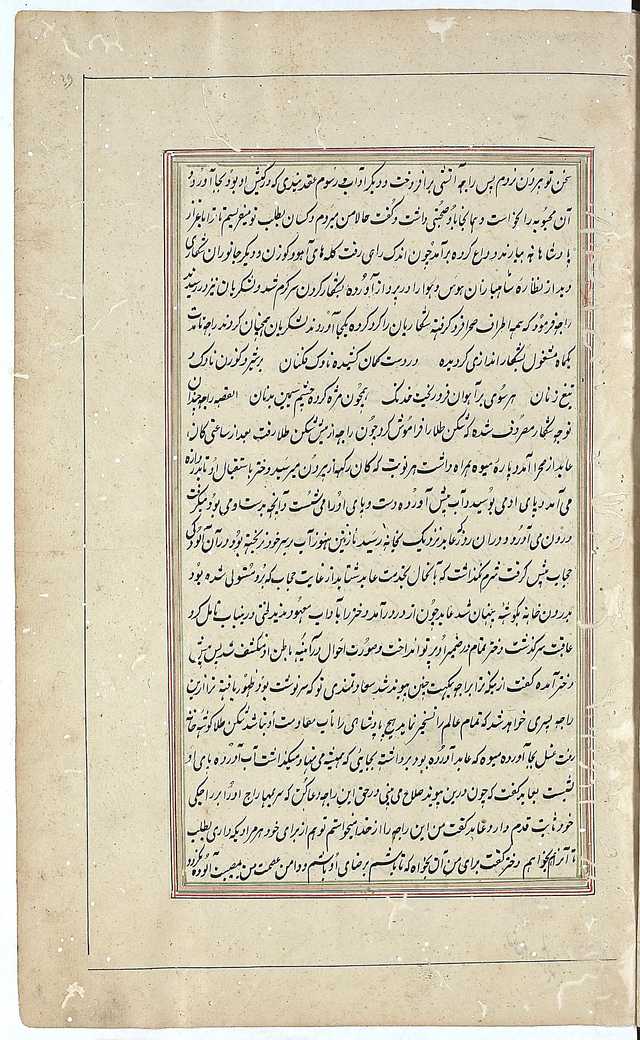 سخن تو بیرون نروم پس راجه آتشی برافروخت و دیگر آداب و رسوم عقد بندی که در کیش او بود بجا آورد و
آن محبوبه را بخواست و همانجا با او صحبتی داشت و گفت حالا من میروم و کسان بطلب تو میفرستم تا ترا باعزاز
پادشاهانه بیارند وداع کرده برآمد چون اندک راهی رفت کله های آهو و گوزن و دیگر جانوران شکاری
دید از نظاره شاهبازان هوس و هوا را در پرواز آورده بشکار کردن سرگرم شد و لشکریان نیز در رسیدند
راجه فرمود که همه اطراف صحرا فرو گرفته شکاریان را گرد کرده یکجا آوردند لشکریان همچنان کردند راجه تا مدت
یکماه مشغول بشکار اندازی گردیده در دست کمان کشیده ناوک فکنان بر نخیر و گوزن ناوک و
تیغ زنان هر سوی بر آهوان فرو ریخت خدنگ همچون مژه کرده چشم سیمین بدنان القصه راجه چندان
توجه بشکار مصروف شده که شکن طلا را فراموش کرد چون راجه از پیش شکن طلا رفت بعد از ساعتی کان
عابد از صحرا آمد و پاره میوه همراه داشت هر نوبت که کان رکهه از بیرون میرسید دختر باستقبال او تا دروازه
می آمد و پای او می بوسید و آب پیش آورده دست و پای او را می شست و آنچه بدست او می بود میگرفت
و درون می آورد و در آن روز که عابد نزدیک بخانه رسید نازنین هنوز آب بر سر خود نریخته بود و در آن آلودگی
حجاب پیش گرفت شرم نگذاشت که با آنحال بخدمت عابد شتابد از غایت حجاب که برو مستولی شده بود
بدرون خانه بگوشه پنهان شد عابد چون از در درآمد و دختر را بآداب معهود ندید لختی درینباب تامل کرد
عاقبت سرگذشت دختر تمام در ضمیر او پرتو انداخت و صورت احوال در آئینه باطن او منکشف شد پس پیش
دختر آمده گفت از بسکه ترا براجه نیکبخت چنین پیوند شد سعادتمندی تو که سرنوشت بود بظهور یافته ترا ازین
راجه پسری خواهد شد که تمام عالم را تسخیر نماید و هیچ پادشاهی را تاب مقاومت او نباشد شکن طلا گوشه خانه
رفت غسل بجا آورده میوه که عابد آورده بود برداشته بجایی که همیشه می نهاد میگذاشت آب آورده پای او
بشست بعابد گفت که چون درین پیوند صلاح می بینی در حق این راجه دعا کن که سریمهاراج او را بر راه نیکی
خود ثابت قدم دارد عابد گفت من این راجه را از خدا میخواستم تو هم از برای خود هر مراد یکه داری بطلب
تا آنرا هم بخواهم دختر گفت برای من آن بخواه که تا باشم برضای او باشم و دامن عصمت من بمعصیت آلوده نگردد